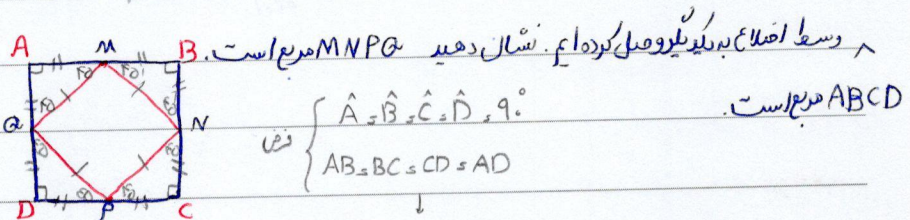 ۸ وسط اضلاع به یکدیگر وصل کرده ایم. نشان دهید MNPQ مربع است.
ABCD مربع است.
فرض
Â = B̂ = Ĉ = D̂ = ۹۰°
AB = BC = CD = AD
A M B
۴۵ ۴۵
۴۵ ۴۵
Q N
۴۵ ۴۵
۴۵ ۴۵
D P C